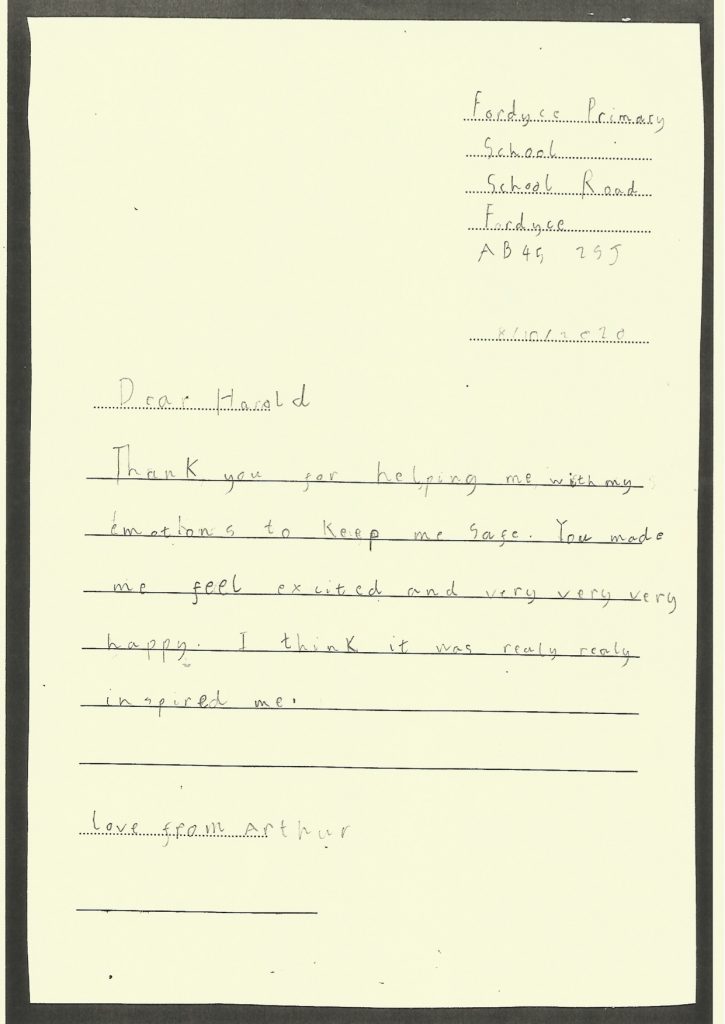 Fordyce Primary
School
School Road
Fordyce
AB45 2SJ
8/10/2020
Dear Harold
Thank you for helping me with my
emotions to keep me safe. You made
me feel excited and very very very
happy. I think it was realy realy
inspired me.
love from Arthur